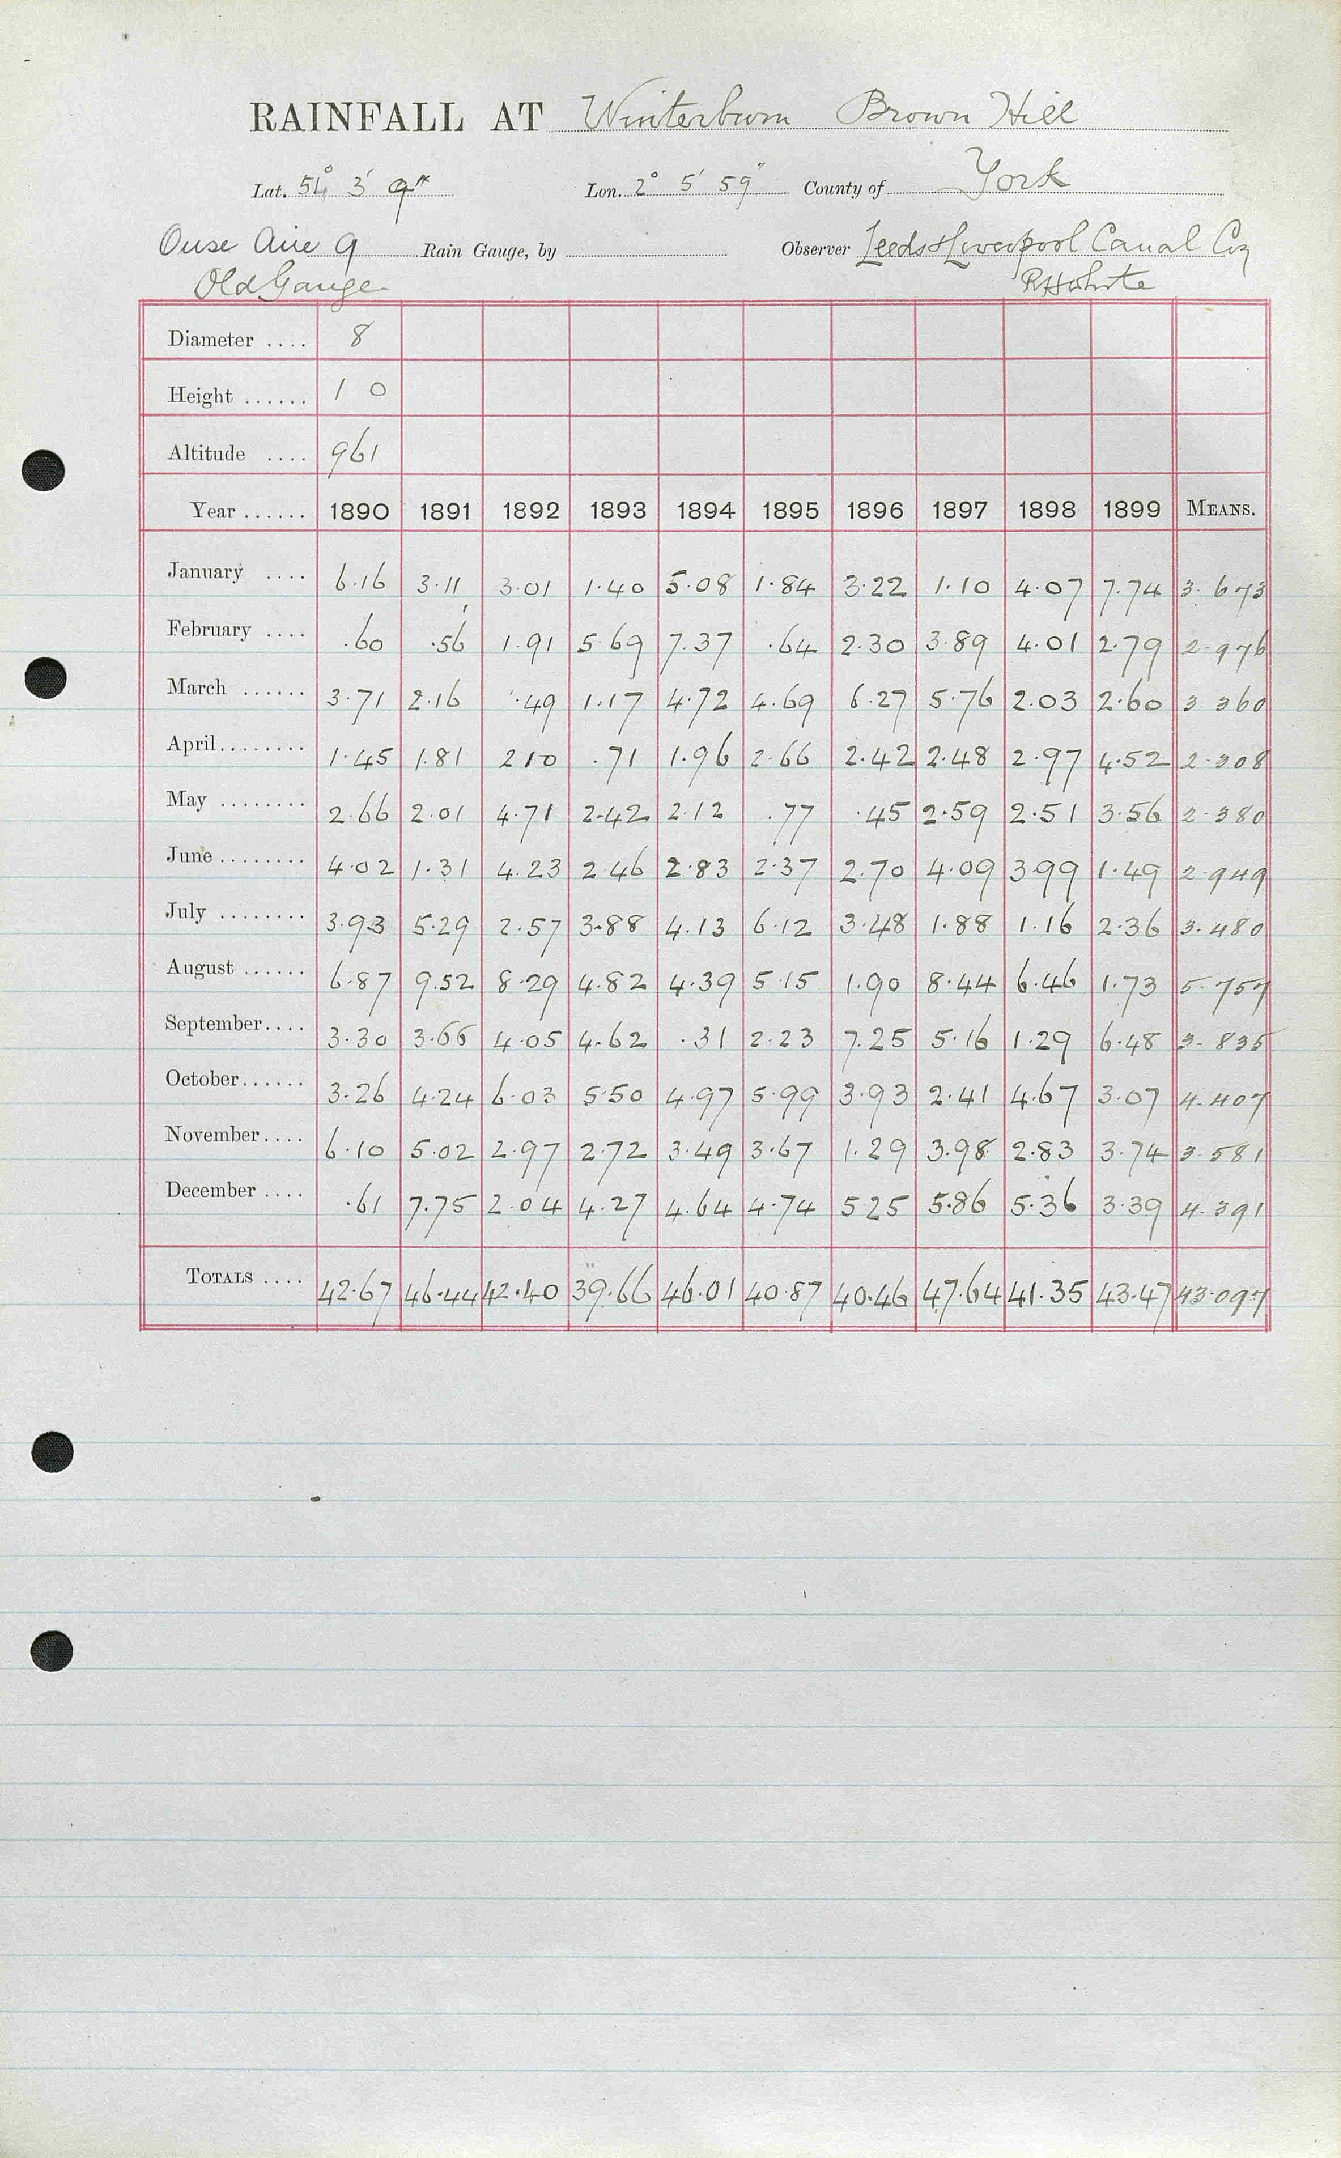 RAINFALL AT Winterburn Brown Hill
Lat. 54° 3' 9" Lon. 2° 5' 59" County of York
Ouse Aire 9 Rain Gauge, by Observer Leeds & Liverpool Canal Co
Old Gauge R H White
Diameter .... 8
Height ...... 1 0
Altitude .... 961
Year ...... 1890 1891 1892 1893 1894 1895 1896 1897 1898 1899 MEANS.
January .... 6.16 3.11 3.01 1.40 5.08 1.84 3.22 1.10 4.07 7.74 3.673
February .... .60 .56 1.91 5.69 7.37 .64 2.30 3.89 4.01 2.79 2.976
March ...... 3.71 2.16 .49 1.17 4.72 4.69 6.27 5.76 2.03 2.60 3 360
April ........ 1.45 1.81 2 10 .71 1.96 2.66 2.42 2.48 2.97 4.52 2.308
May ........ 2.66 2.01 4.71 2.42 2.12 .77 .45 2.59 2.51 3.56 2.380
June ........ 4.02 1.31 4.23 2.46 2.83 2.37 2.70 4.09 3.99 1.49 2.949
July ........ 3.93 5.29 2.57 3.88 4.13 6.12 3.48 1.88 1.16 2.36 3.480
August ...... 6.87 9.52 8.29 4.82 4.39 5.15 1.90 8.44 6.46 1.73 5.757
September.... 3.30 3.66 4.05 4.62 .31 2.23 7.25 5.16 1.29 6.48 3.835
October...... 3.26 4.24 6.03 5.50 4.97 5.99 3.93 2.41 4.67 3.07 4.407
November.... 6.10 5.02 2.97 2.72 3.49 3.67 1.29 3.98 2.83 3.74 3.581
December .... .61 7.75 2.04 4.27 4.64 4.74 5 25 5.86 5.36 3.39 4.391
TOTALS .... 42.67 46.44 42.40 39.66 46.01 40.87 40.46 47.64 41.35 43.47 43.097